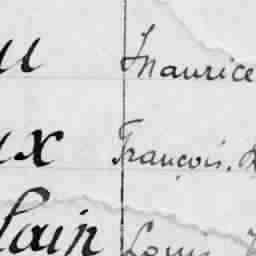 u Maurice
ux François.
lain Louis